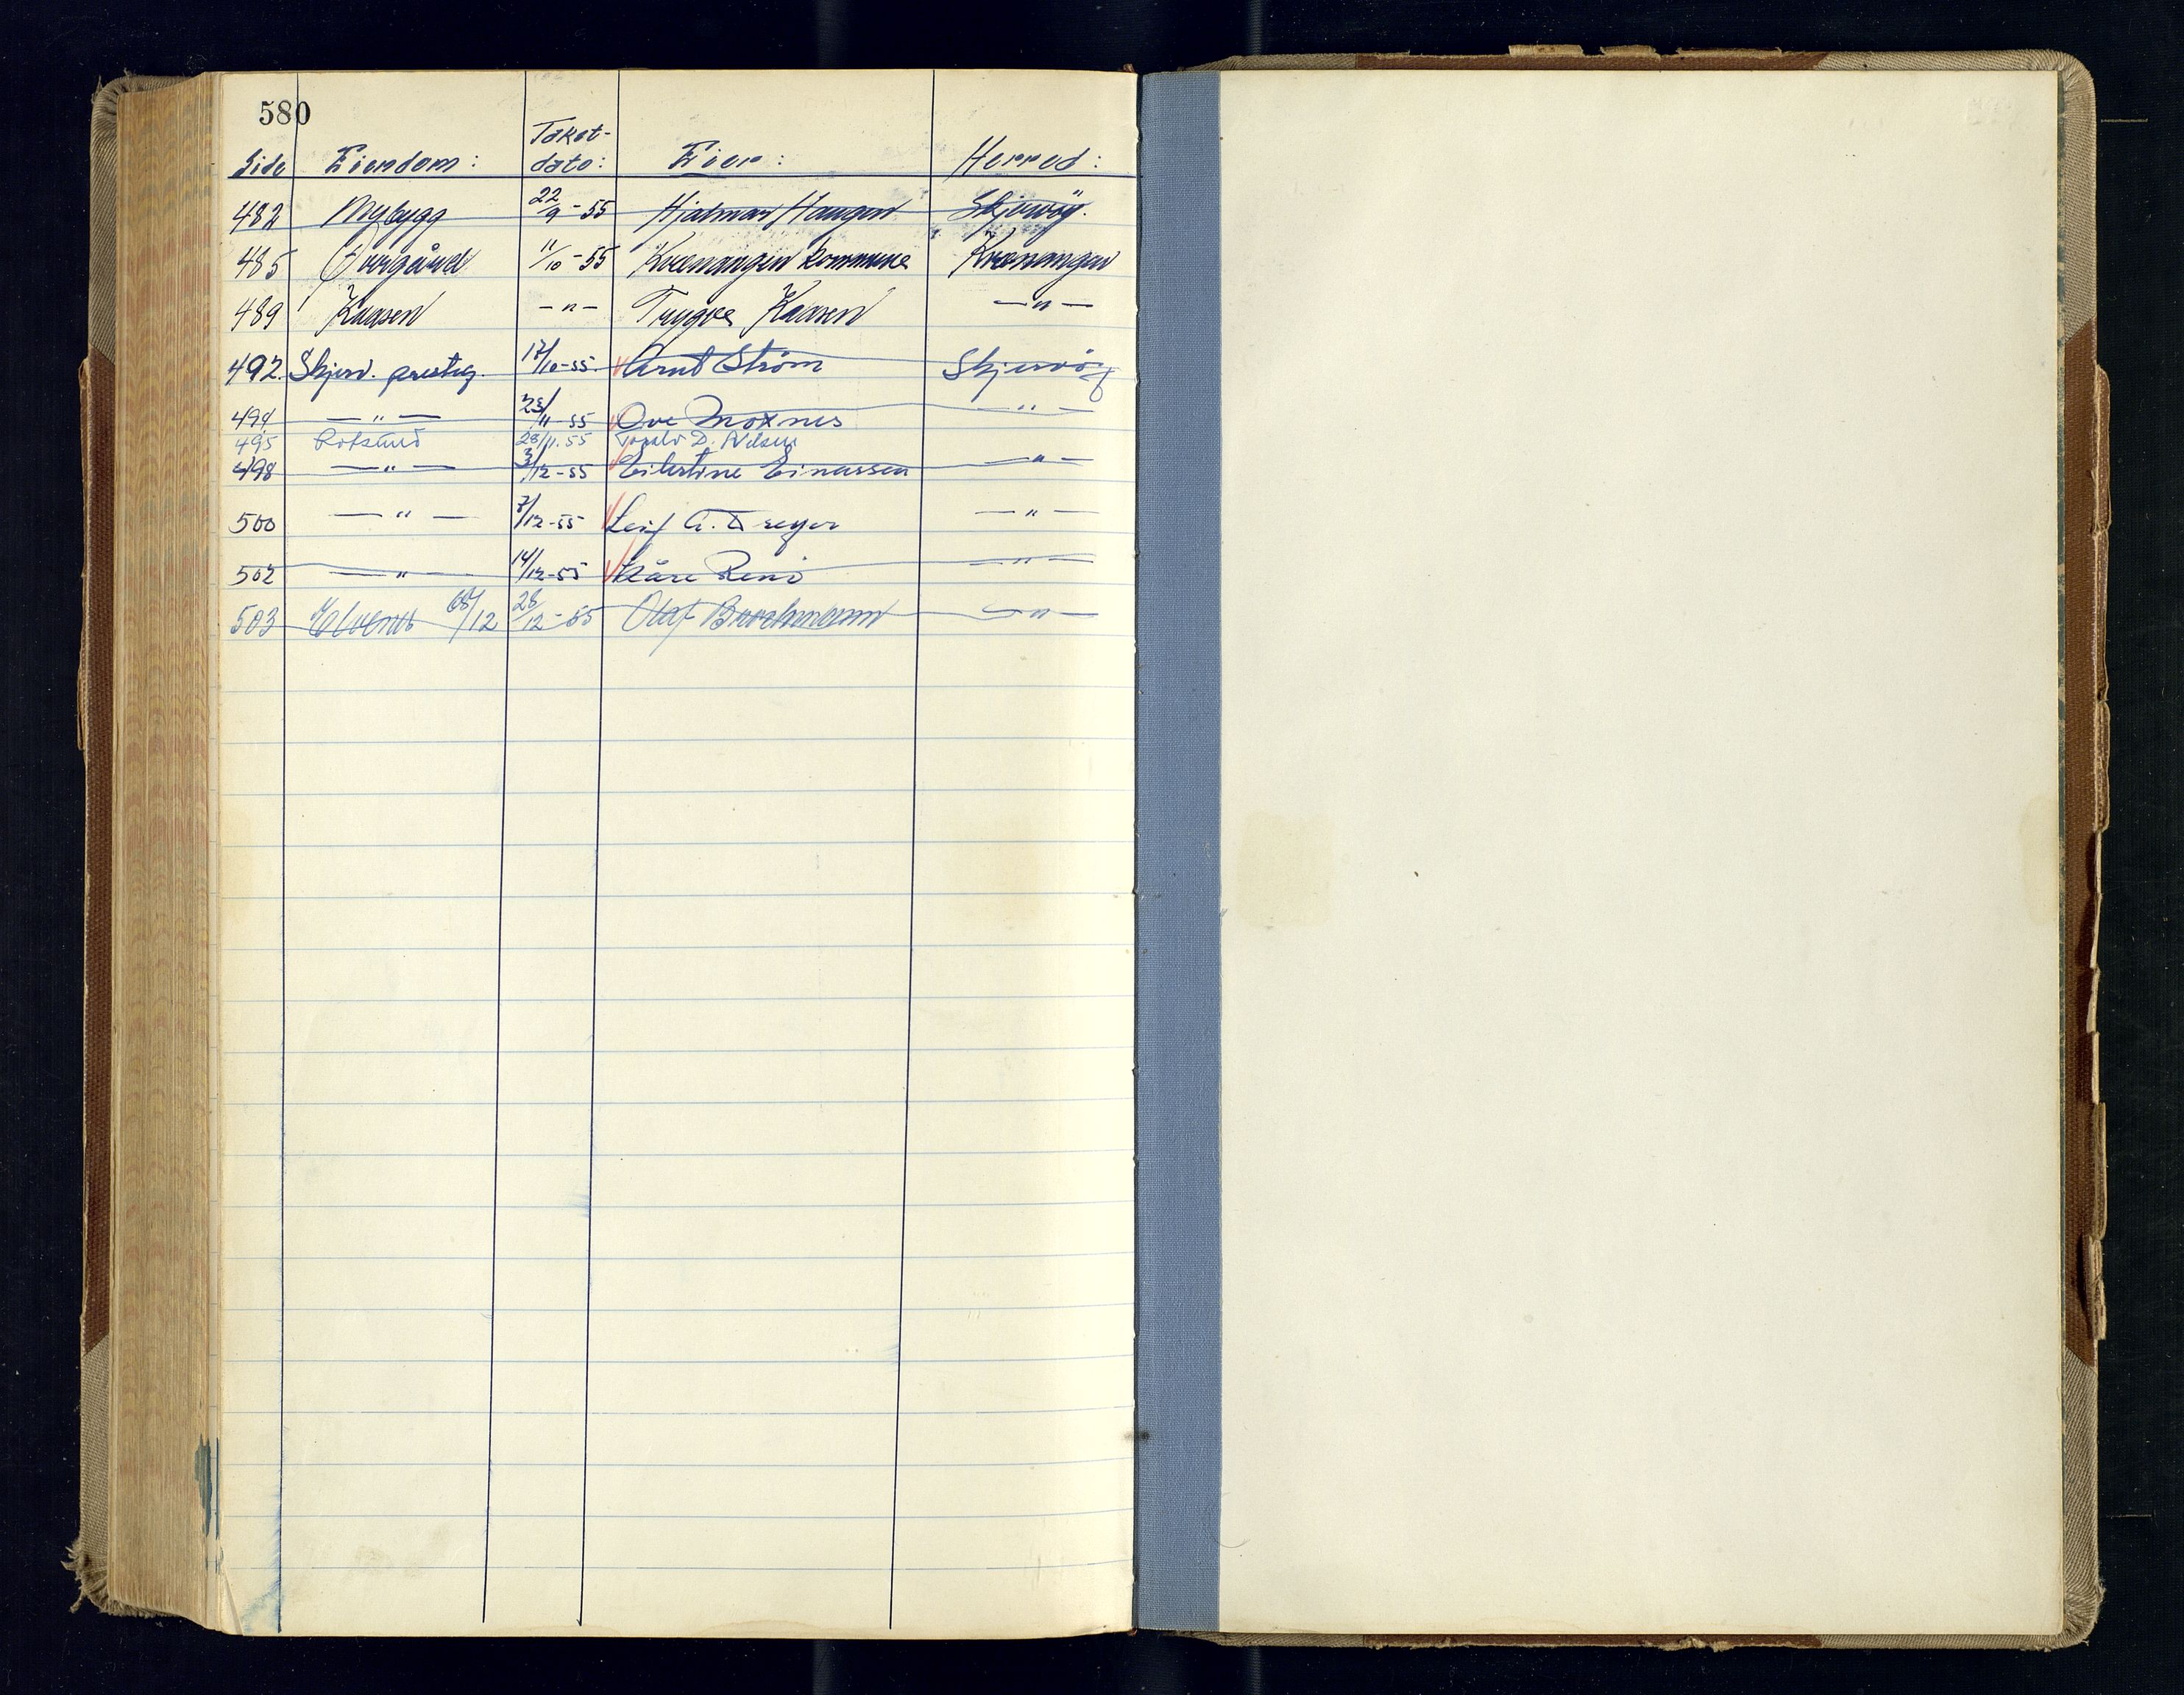 580
Side Eiendom: Takst-dato: Eier: Herred:
482 Nybygg 22/9-55 Hjalmar Haugen Skjervöy.
485 Övergård 11/10-55 Kvænangen kommune Kvænangen
489 Kaasen -"- Trygve Kaasen -"-
492. Skjerv. presteg. 17/10-55. Arnt Ström Skjervöy
494 -"- 23/11-55 Ove Moxnes -"-
495 Rotsund 28/11.55 Toralv D. Nilsen
498 -"- 3/12-55 Eilertine Einarsen -"-
500 -"- 7/12-55 Leif A. -"-
502 -"- 14/12-55 Kåre Reiö -"-
503 Elvenes 68/12 28/12-55 Olaf -"-